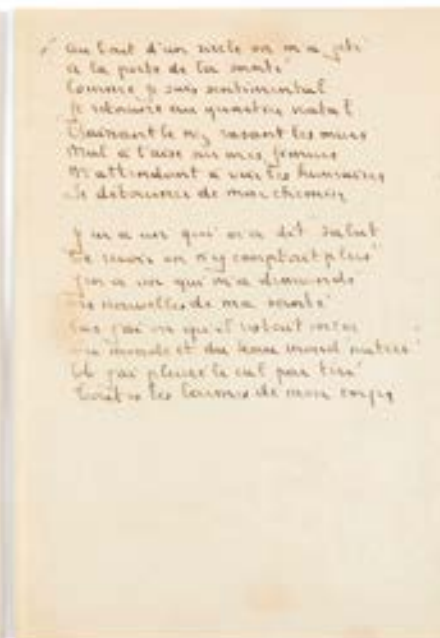 Au bout d'un siècle on m'a jeté
A la porte de la santé
Comme je suis sentimental
Je retourne au quartier natal
Baissant le nez rasant les murs
Mal à l'aise sur mes fémurs
M'attendant à voir les humains
Se détourner de mon chemin
Y en a un qui m'a dit salut
Te revoir on n'y comptait plus
Y en a un qui m'a demandé
Des nouvelles de ma santé
j'ai vu qu'il restait encor
Du monde et du beau mond
Et j'ai pleuré le cul par
Toutes les larmes de mon corps